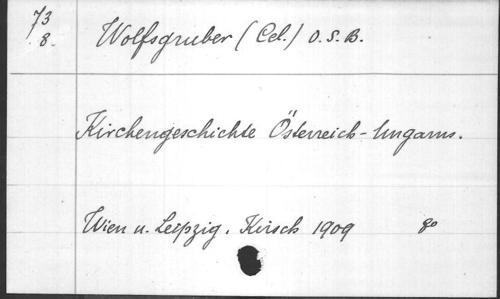 73
8.
Wolfsgruber (Cel.) O.S.B.
Kirchengeschichte Österreich-Ungarns.
Wien u. Leipzig. Kirsch 1909 8°